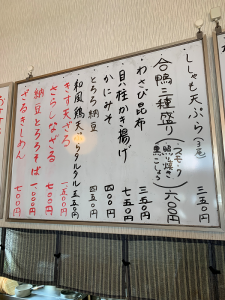 ししゃも天ぷら（3尾） 三五〇円
合鴨三種盛り（スモーク 鴨ロース 黒こしょう） 六〇〇円
わさび昆布 三五〇円
貝柱かき揚げ 七五〇円
かにみそ 四五〇円
とろろ納豆 四五〇円
和風鶏天 タルタル 五五〇円
きす天ざる
さらしなざる 七〇〇円
納豆とろろそば 一〇〇〇円
ざるきしめん 七〇〇円